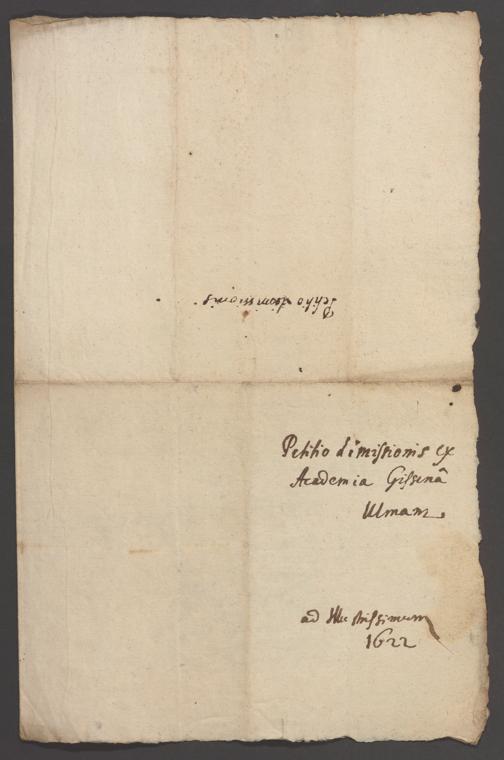 Petitio dimissionis
Petitio dimissionis ex
Academia Gissenâ
Ulmam.
ad Illustrissimum
1622